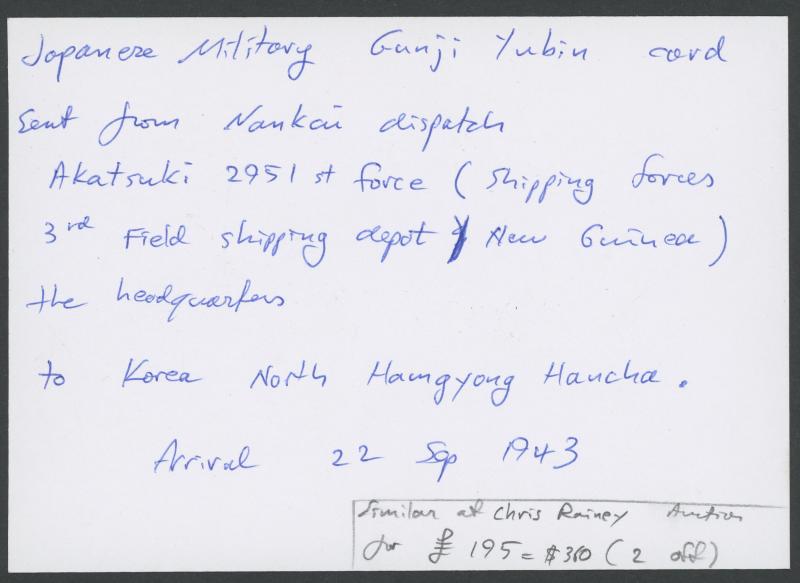 Japanese Military Gunji Yubin card
Sent from Nankai dispatch
Akatsuki 2951 st force (shipping forces
3rd Field shipping depot New Guinea)
the headquarters
to Korea North Hamgyong Hancha.
Arrival 22 Sep 1943
Similar at Chris Rainey Auction
for £ 195 = $360 (2 off)